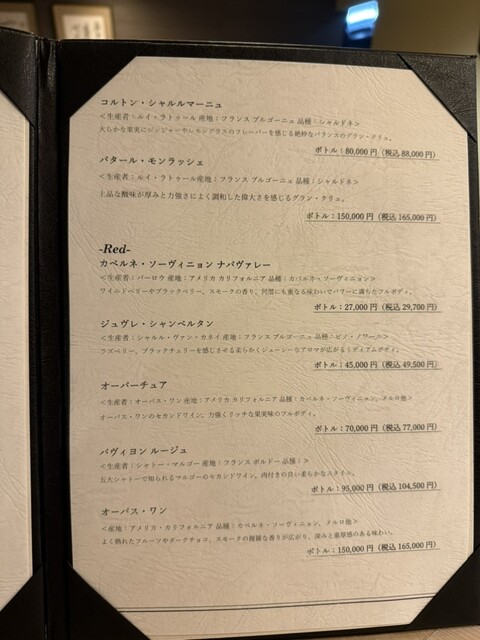 コルトン・シャルルマーニュ
<生産者：ルイ・ラトゥール 産地：フランス ブルゴーニュ 品種：シャルドネ>
大らかな果実にジンジャーやレモングラスのフレーバーを感じる絶妙なバランスのグラン・クリュ。
ボトル：80,000 円（税込 88,000 円）
バタール・モンラッシェ
<生産者：ルイ・ラトゥール産地：フランス ブルゴーニュ 品種：シャルドネ>
上品な酸味が厚みと力強さによく調和した偉大さを感じるグラン・クリュ。
ボトル：150,000 円（税込 165,000 円）
-Red-
カベルネ・ソーヴィニョン ナパヴァレー
<生産者：バーロウ 産地：アメリカ カリフォルニア 品種：カベルネ・ソーヴィニョン>
ワイルドベリーやブラックベリー、スモークの香り、何層にも重なる味わいでパワーに満ちたフルボディ。
ボトル：27,000 円（税込 29,700 円）
ジュヴレ・シャンベルタン
<生産者：シャルル・ヴァン・カネイ 産地：フランス ブルゴーニュ 品種：ピノ・ノワール>
ラズベリー、ブラックチェリーを感じさせる柔らかくジューシーなアロマが広がるミディアムボディ。
ボトル：45,000 円（税込 49,500 円）
オーバーチュア
<生産者：オーパス・ワン 産地：アメリカ カリフォルニア 品種：カベルネ・ソーヴィニョン、メルロ他>
オーパス・ワンのセカンドワイン。力強くリッチな果実味のフルボディ。
ボトル：70,000 円（税込 77,000 円）
パヴィヨン ルージュ
<生産者：シャトー・マルゴー 産地：フランス ボルドー 品種：>
五大シャトーで知られるマルゴーのセカンドワイン。肉付きの良い柔らかなスタイル。
ボトル：95,000 円（税込 104,500 円）
オーパス・ワン
<産地：アメリカ・カリフォルニア 品種：カベルネ・ソーヴィニョン、メルロ他>
よく熟れたフルーツやダークチョコ、スモークの複雑な香りが広がり、深みと重厚感のある味わい。
ボトル：150,000 円（税込 165,000 円）